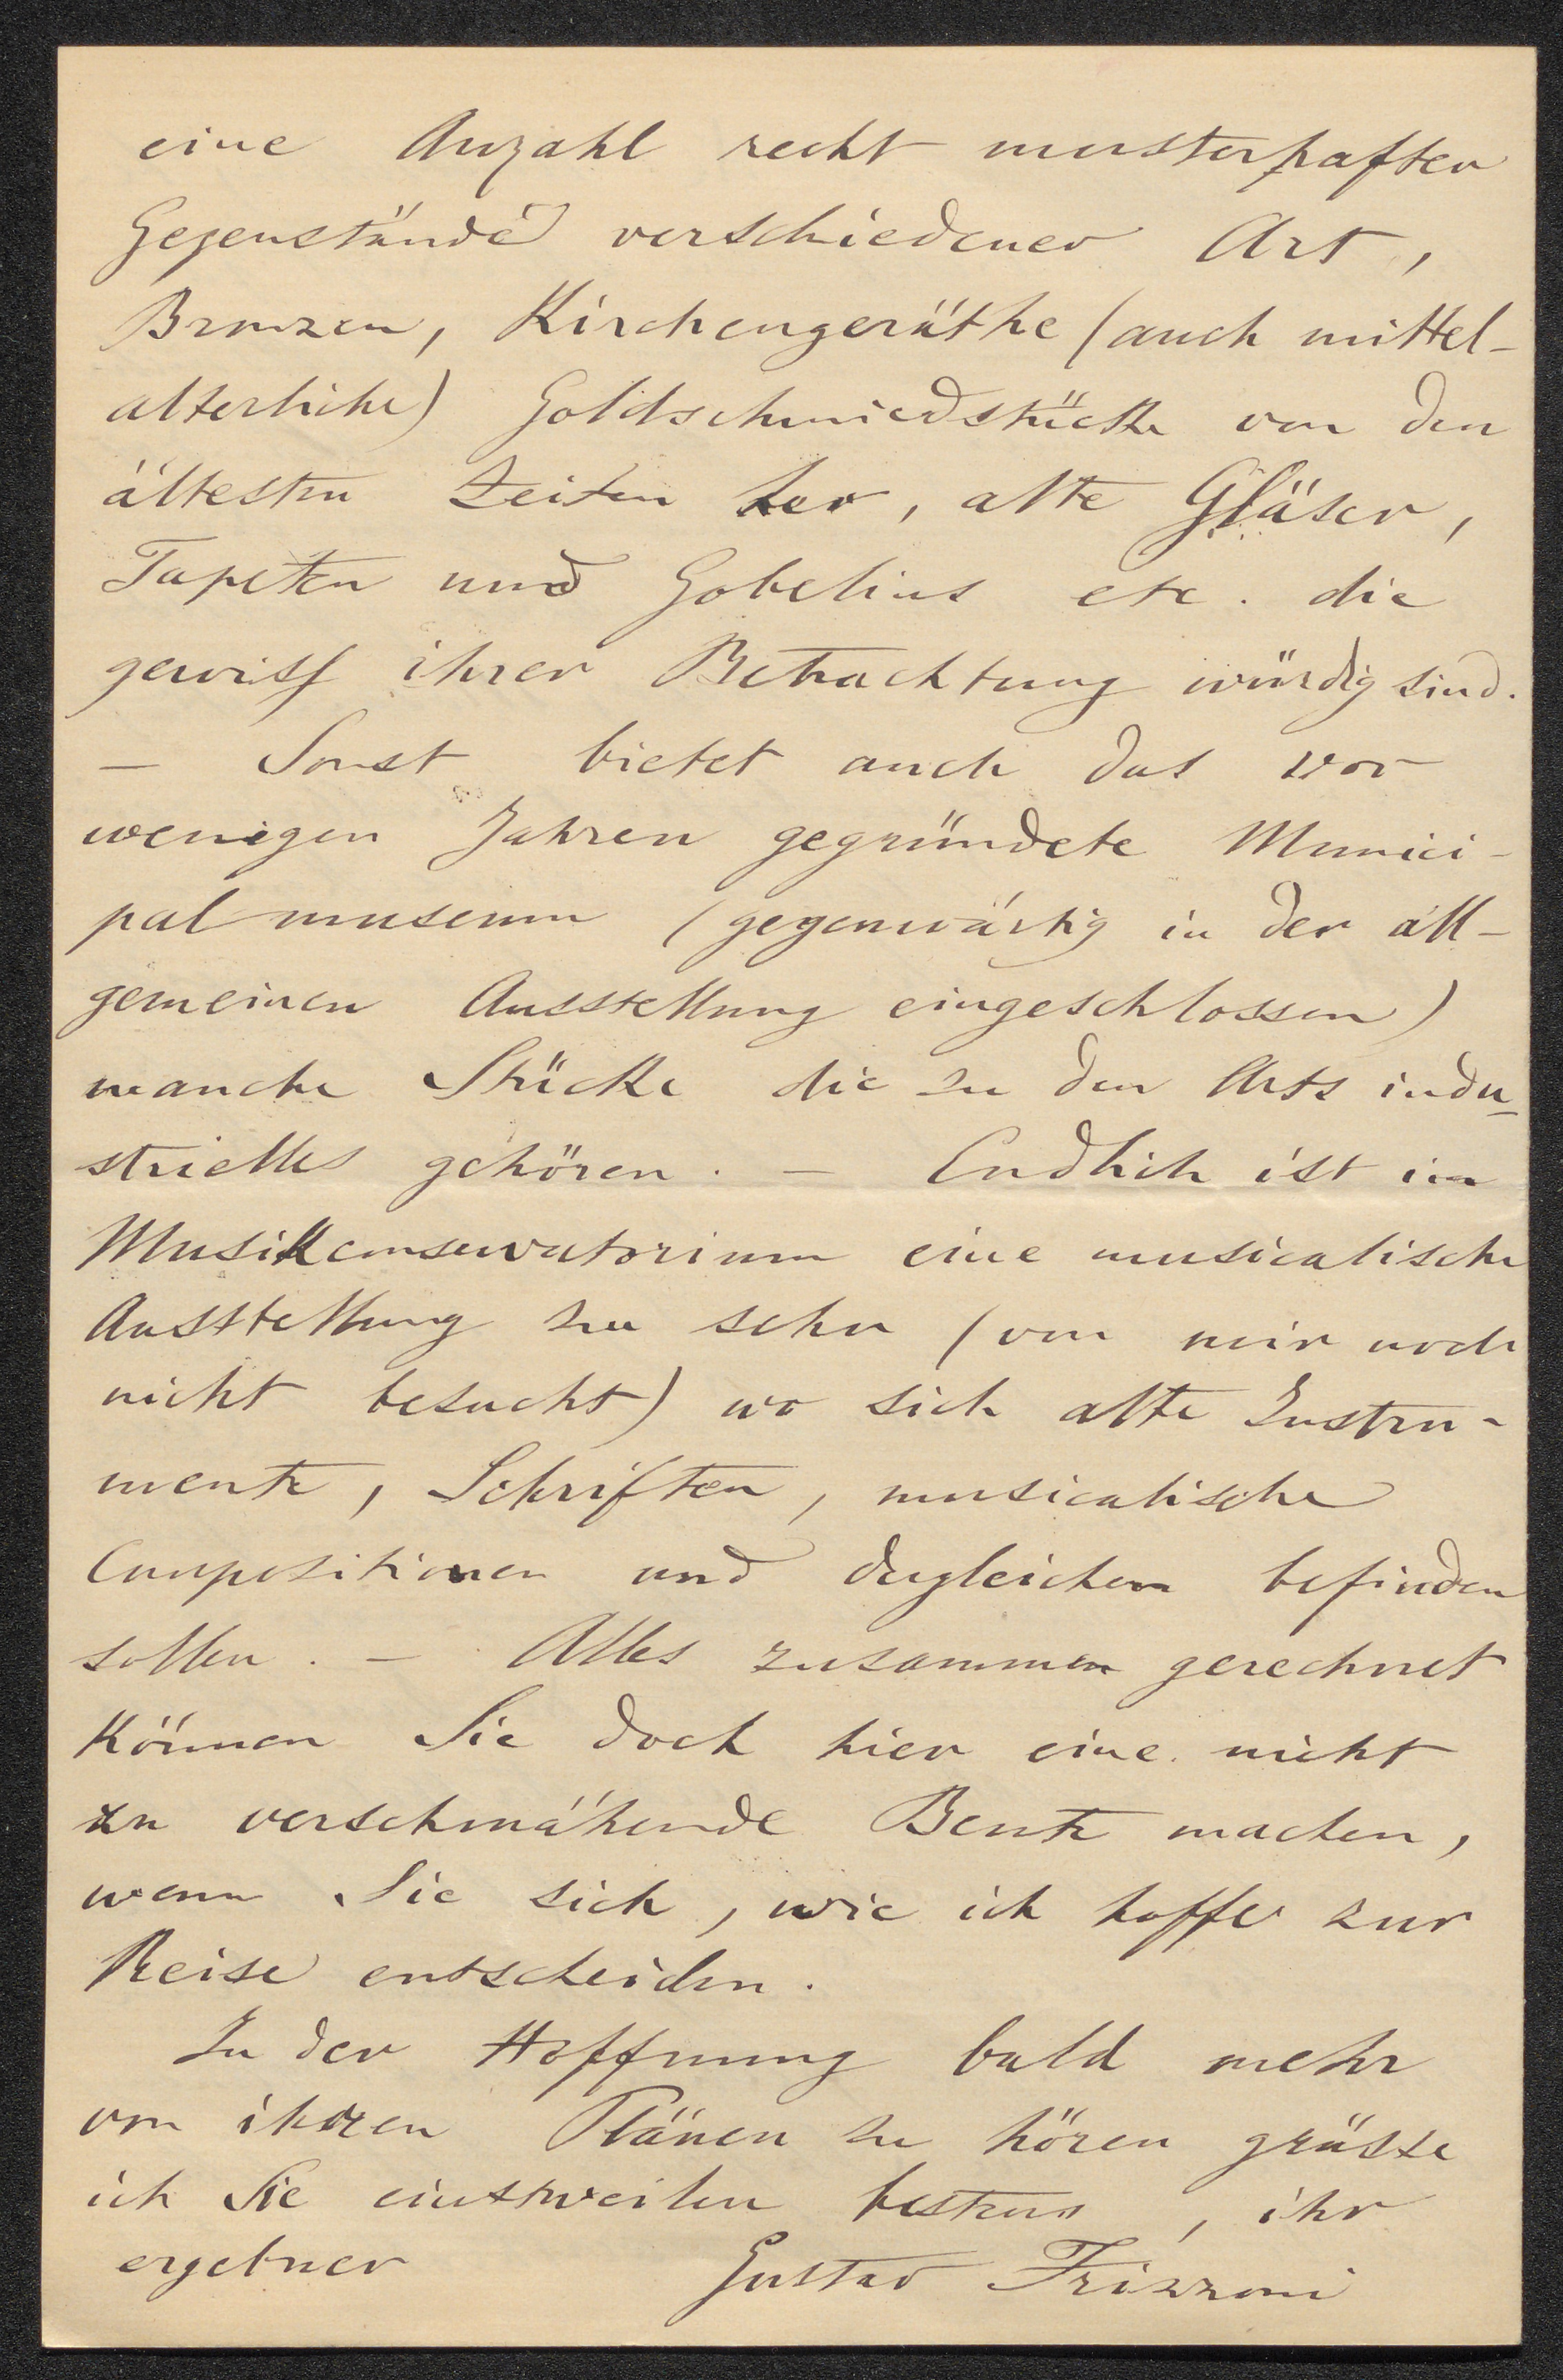 eine Anzahl recht musterhafter
Gegenstände verschiedener Art,
Bronzen, Kirchengeräthe (auch mittel-
alterliche) Goldschmiedstücke von den
ältesten Zeiten her, alte Gläser,
Tapeten und Gobelins etc. die
gewiss ihrer Betrachtung würdig sind.
— Sonst bietet auch das vor
wenigen Jahren gegründete Munici-
palmuseum (gegenwärtig in der all-
gemeinen Ausstellung eingeschlossen)
manche Stücke die zu den Arts indu-
strielles gehören. — Endlich ist im
Musikconservatorium eine musicalische
Ausstellung zu sehn (von mir noch
nicht besucht) wo sich alte Instru-
mente, Schriften, musicalische
Compositionen und dergleichen befinden
sollen. — Alles zusammen gerechnet
können Sie doch hier eine nicht
zu verschmähende Beute machen,
wenn Sie sich, wie ich hoffe zur
Reise entscheiden.
In der Hoffnung bald mehr
von ihren Plänen zu hören grüsse
ich Sie einstweilen bestens, ihr
ergebner Gustav Frizzoni